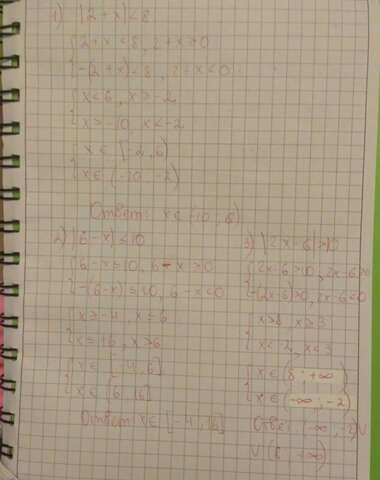 1) |2+x|<8
2+x<8, 2+x≥0
-(2+x)<8, 2+x<0
x<6, x≥-2
x>-10, x<-2
x∈[-2; 6)
x∈(-10; -2)
Ответ: x∈(-10; 6)
2) |6-x|≤10
6-x≤10, 6-x≥0
-(6-x)≤10, 6-x<0
x≥-4, x≤6
x≤16, x>6
x∈[-4; 6]
x∈(6; 16]
Ответ: x∈[-4; 16]
3) |2x-6|>10
2x-6>10, 2x-6≥0
-(2x-6)>10, 2x-6<0
x>8, x≥3
x<-2, x<3
x∈(8; +∞)
x∈(-∞; -2)
Ответ: (-∞; -2)∪
∪(8; +∞)